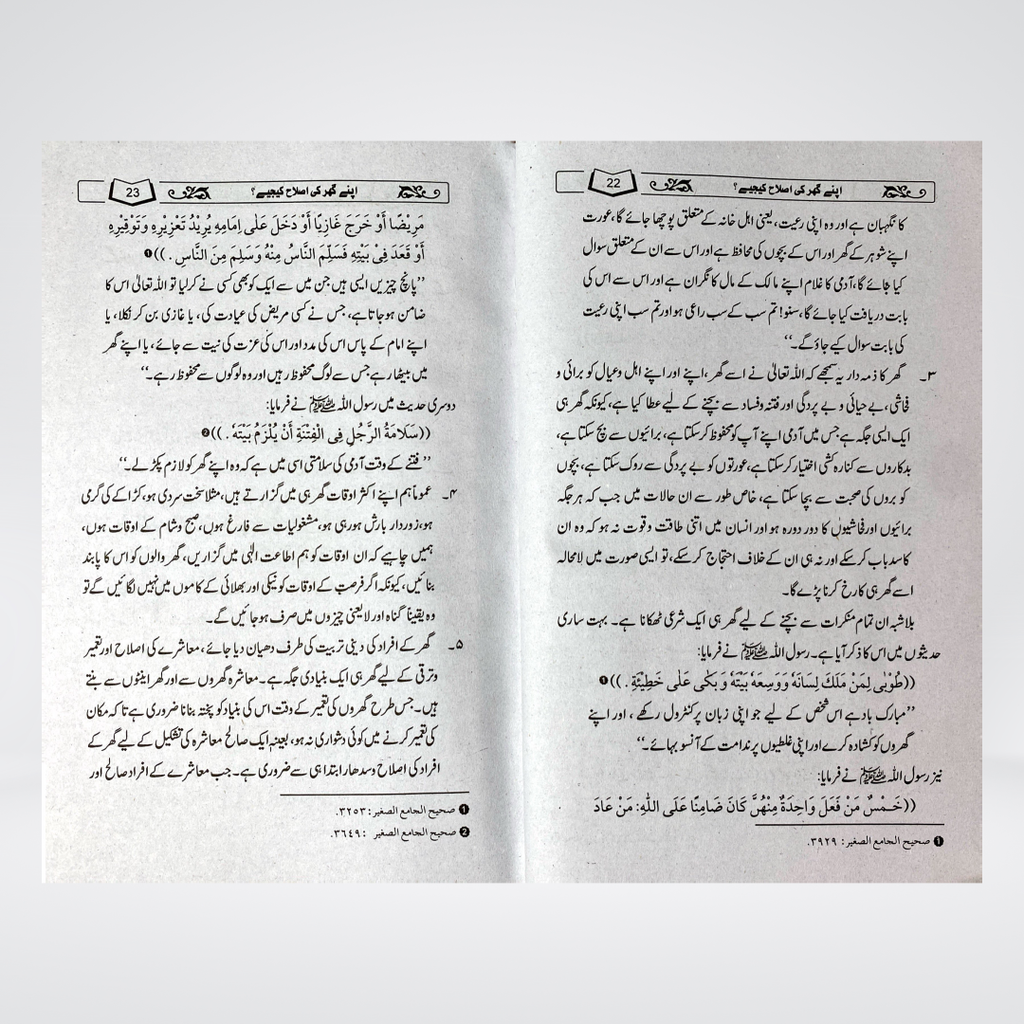 اپنے گھر کی اصلاح کیجیے؟ 22
کا نگہبان ہے اور وہ اپنی رعیت، یعنی اہل خانہ کے متعلق پوچھا جائے گا، عورت
اپنے شوہر کے گھر اور اس کے بچوں کی محافظ ہے اور اس سے ان کے متعلق سوال
کیا جائے گا، آدمی کا غلام اپنے مالک کے مال کا نگران ہے اور اس سے اس کی
بابت دریافت کیا جائے گا، سنو! تم سب کے سب راعی ہو اور تم سب اپنی رعیت
کی بابت سوال کیے جاؤ گے۔‘‘
۳۔ گھر کا ذمہ دار یہ سمجھے کہ اللہ تعالیٰ نے اسے گھر، اپنے اور اپنے اہل و عیال کو برائی و
فحاشی، بے حیائی و بے پردگی اور فتنہ و فساد سے بچنے کے لیے عطا کیا ہے، کیونکہ گھر ہی
ایک ایسی جگہ ہے جس میں آدمی اپنے آپ کو محفوظ کر سکتا ہے، برائیوں سے بچ سکتا ہے،
بدکاروں سے کنارہ کشی اختیار کر سکتا ہے، عورتوں کو بے پردگی سے روک سکتا ہے، بچوں
کو بروں کی صحبت سے بچا سکتا ہے، خاص طور سے ان حالات میں جب کہ ہر جگہ
برائیوں اور فحاشیوں کا دور دورہ ہو اور انسان میں اتنی طاقت و قوت نہ ہو کہ وہ ان
کا سدباب کر سکے اور نہ ہی ان کے خلاف احتجاج کر سکے، تو ایسی صورت میں لامحالہ
اسے گھر ہی کا رخ کرنا پڑے گا۔
بلاشبہ ان تمام منکرات سے بچنے کے لیے گھر ہی ایک شرعی ٹھکانا ہے۔ بہت ساری
حدیثوں میں اس کا ذکر آیا ہے۔ رسول اللہ ﷺ نے فرمایا:
((طُوْبٰى لِمَنْ مَلَكَ لِسَانَهٗ وَوَسِعَهٗ بَيْتَهٗ وَ بَكٰى عَلٰى خَطِيْئَةِ . )) ❶
’’مبارک باد ہے اس شخص کے لیے جو اپنی زبان پر کنٹرول رکھے ، اور اپنے
گھروں کو کشادہ کرے اور اپنی غلطیوں پر ندامت کے آنسو بہائے۔‘‘
نیز رسول اللہ ﷺ نے فرمایا:
((خَمْسٌ مَنْ فَعَلَ وَاحِدَةً مِنْهُنَّ كَانَ ضَامِنًا عَلَى اللّٰهِ: مَنْ عَادَ
❶ صحيح الجامع الصغير: ٣٩٢٩.
اپنے گھر کی اصلاح کیجیے؟ 23
مَرِيْضًا أَوْ خَرَجَ غَازِيًا أَوْ دَخَلَ عَلٰى إِمَامِهِ يُرِيْدُ تَعْزِيْرِهٖ وَتَوْقِيْرِهٖ
أَوْ قَعَدَ فِيْ بَيْتِهٖ فَسَلِمَ النَّاسُ مِنْهُ وَسَلِمَ مِنَ النَّاسِ . )) ❶
’’پانچ چیزیں ایسی ہیں جن میں سے ایک کو بھی کسی نے کر لیا تو اللہ تعالیٰ اس کا
ضامن ہو جاتا ہے، جس نے کسی مریض کی عیادت کی، یا غازی بن کر نکلا، یا
اپنے امام کے پاس اس کی مدد اور اس کی عزت کی نیت سے جائے، یا اپنے گھر
میں بیٹھا رہے جس سے لوگ محفوظ رہیں اور وہ لوگوں سے محفوظ رہے۔‘‘
دوسری حدیث میں رسول اللہ ﷺ نے فرمایا:
((سَلَامَةُ الرَّجُلِ فِى الْفِتْنَةِ أَنْ يُلْزَمُ بَيْتَهٗ . )) ❷
’’فتنے کے وقت آدمی کی سلامتی اسی میں ہے کہ وہ اپنے گھر کو لازم پکڑ لے۔‘‘
۴۔ عموماً ہم اپنے اکثر اوقات گھر ہی میں گزارتے ہیں، مثلا سخت سردی ہو، کڑاکے کی گرمی
ہو، زوردار بارش ہو رہی ہو، مشغولیات سے فارغ ہوں، صبح و شام کے اوقات ہوں،
ہمیں چاہیے کہ ان اوقات کو ہم اطاعت الٰہی میں گزاریں، گھر والوں کو اس کا پابند
بنائیں، کیونکہ اگر فرصت کے اوقات کو نیکی اور بھلائی کے کاموں میں نہیں لگائیں گے تو
وہ یقیناً گناہ اور لایعنی چیزوں میں صرف ہو جائیں گے۔
۵۔ گھر کے افراد کی دینی تربیت کی طرف دھیان دیا جائے، معاشرے کی اصلاح اور تعمیر
و ترقی کے لیے گھر ہی ایک بنیادی جگہ ہے۔ معاشرہ گھروں سے اور گھر اینٹوں سے بنتے
ہیں۔ جس طرح گھروں کی تعمیر کے وقت اس کی بنیاد کو پختہ بنانا ضروری ہے تاکہ مکان
کی تعمیر کرنے میں کوئی دشواری نہ ہو، بعینہٖ ایک صالح معاشرہ کی تشکیل کے لیے گھر کے
افراد کی اصلاح و سدھار ابتدا ہی سے ضروری ہے۔ جب معاشرے کے افراد صالح اور
❶ صحيح الجامع الصغير: ٣٢٥٣.
❷ صحيح الجامع الصغير: ٣٦٤٩.